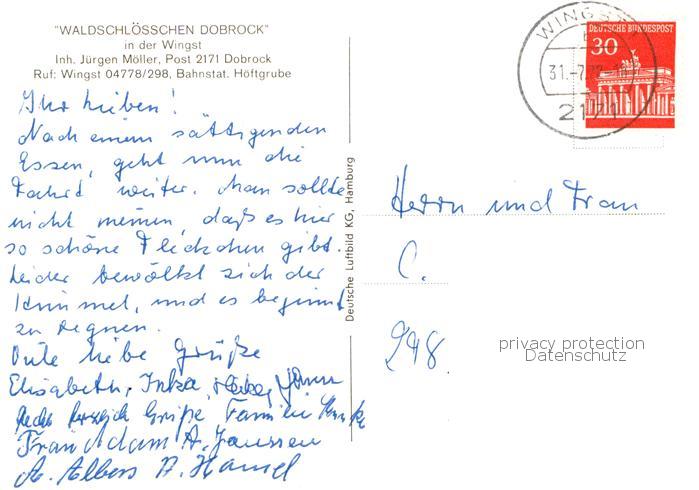 "WALDSCHLÖSSCHEN DOBROCK"
in der Wingst
Inh. Jürgen Möller, Post 2171 Dobrock
Ruf: Wingst 04778/298, Bahnstat. Höftgrube
Ihr Lieben!
Nach einem sättigenden
Essen, geht nun die
Fahrt weiter. Man sollte
nicht meinen, daß es hier
so schöne Fleckchen gibt.
Leider bewölkt sich der
Himmel, und es beginnt
zu regnen.
Viele liebe Grüße
Elisabeth, Inka,
Grüße Familie
Frau Adam A. Janssen
A. Albers A. Hamel
Deutsche Luftbild KG, Hamburg
WINGST
31.-7.
2171
DEUTSCHE BUNDESPOST
30
Herrn und Frau
C.
privacy protection
Datenschutz